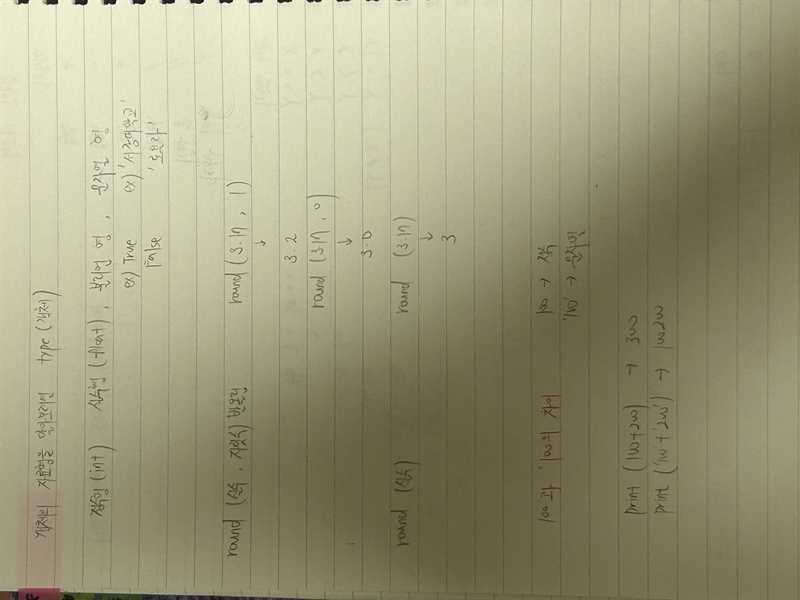 객체의 자료형을 알아보려면 type (객체)
정수형 (int) 실수형 (float), 불리언 형, 문자열 형
ex) True ex) '서정아학교'
False '토요라'
round (실수, 자릿수) 반올림 round (3.17, 1)
↓
3.2
round (3.17, 0)
↓
3.0
round (실수) round (3.17)
↓
3
100과 '100'의 차이 100 → 정수
'100' → 문자열
print (100+200) → 300
print ('100'+'200') → 100200